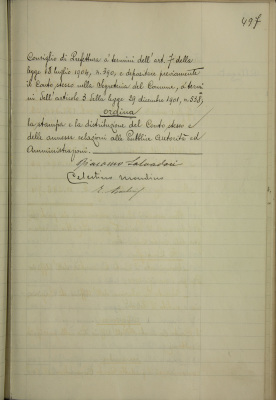 497
Consiglio di Prefettura a' termini dell'art. 7 della
legge 18 luglio 1904, n. 390, e depositare previamente
il Conto stesso nella Segreteria del Comune, a' termi
ni dell'articolo 3 della legge 29 dicembre 1901, n. 538,
ordina
la stampa e la distribuzione del Conto stesso e
delle annesse relazioni alle Pubbliche Autorità ed
Amministrazioni.
Giacomo Salvadori
Celestino